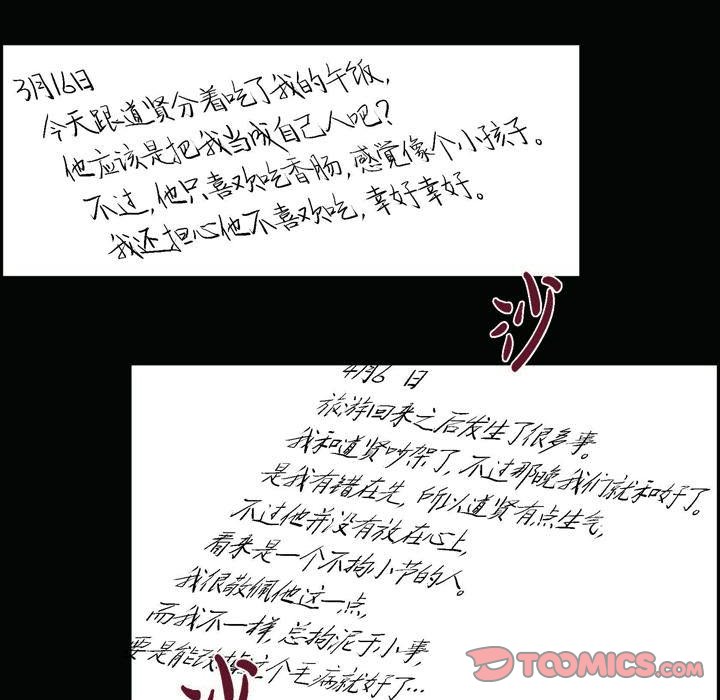 3月16日
今天跟道贤分着吃了我的午饭,
他应该是把我当成自己人吧?
不过,他只喜欢吃香肠,感觉像个小孩子。
我还担心他不喜欢吃,幸好幸好。
沙
4月6日
旅游回来之后发生了很多事。
我和道贤吵架了,不过那晚我们就和好了。
是我有错在先,所以道贤有点生气,
不过他并没有放在心上,
看来是一个不拘小节的人。
我很敬佩他这一点,
而我不一样,总拘泥于小事,
要是能改掉这个毛病就好了…
沙
TOOMICS.COM